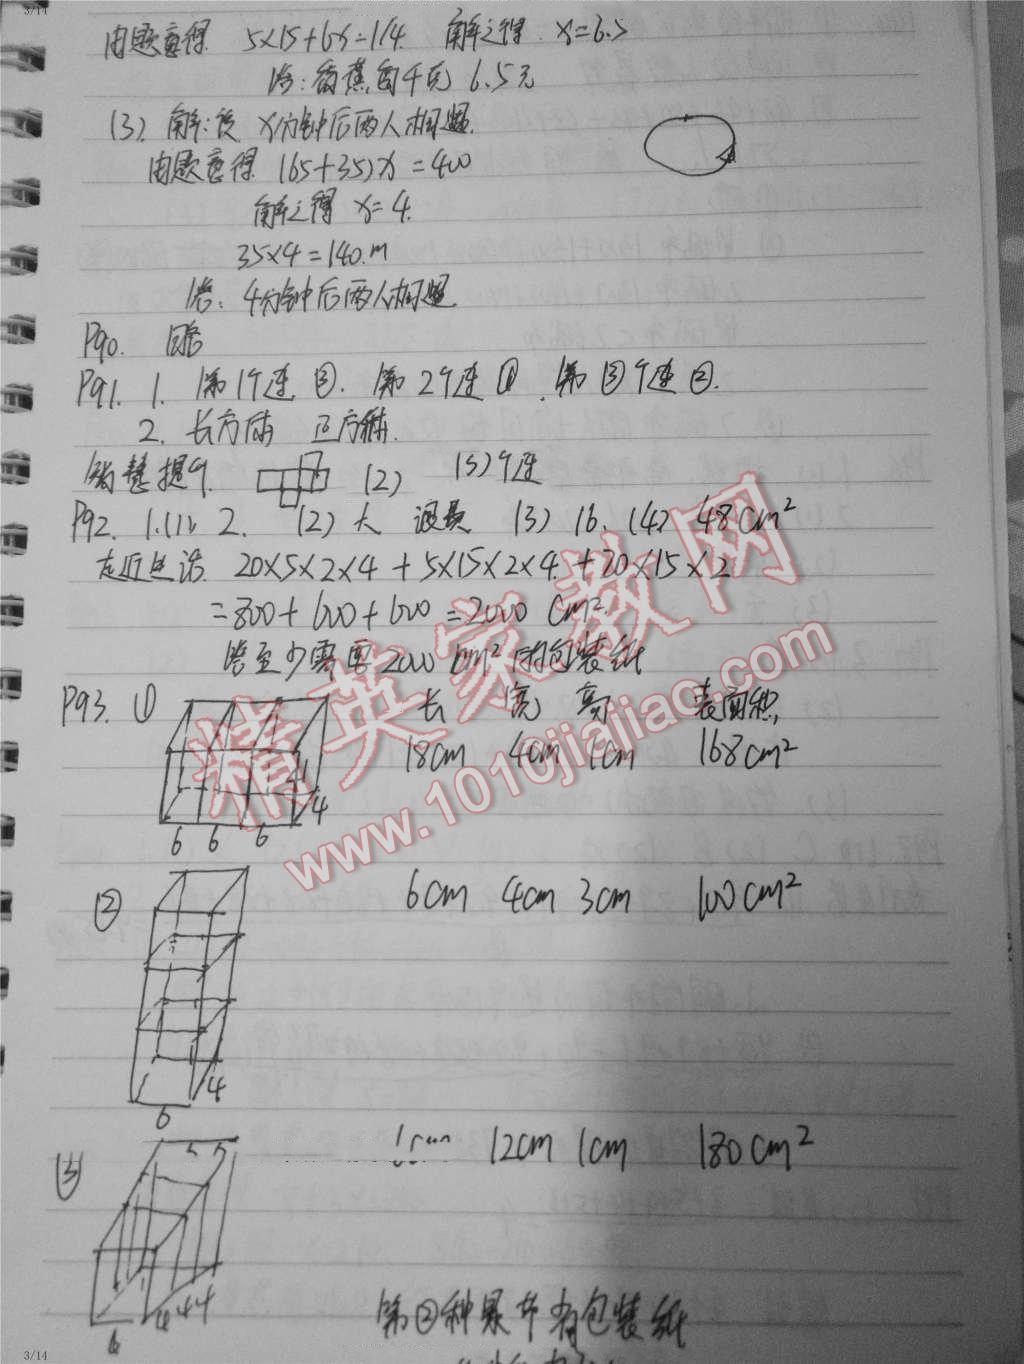 3/14
由题意得 5×15+6x=114 解之得 x=6.5
答:香蕉每千克 6.5元
(3) 解:设 x分钟后两人相遇.
由题意得 (65+35)x=400
解之得 x=4.
35×4=140.m
答: 4分钟后两人相遇
P90. 略
P91. 1. 第1个连③. 第2个连①. 第③个连②.
2. 长方体 正方体.
智慧提升. (2) (5)个连
P92. 1.(1) 2. (2) 大 (3) 16. (4) 48cm²
走近生活 20×5×2×4+5×15×2×4+20×15×2
=800+600+600=2000 cm²
答至少需要2000cm²的包装纸
P93. ① 长 宽 高 表面积
18cm 4cm 1cm 168cm²
6 6 6 4
② 6cm 4cm 3cm 100cm²
4
6
③ 12cm 1cm 180cm²
4 4 4
6
第②种最节省包装纸
精英家教网
www.1010jiajiao.com
3/14